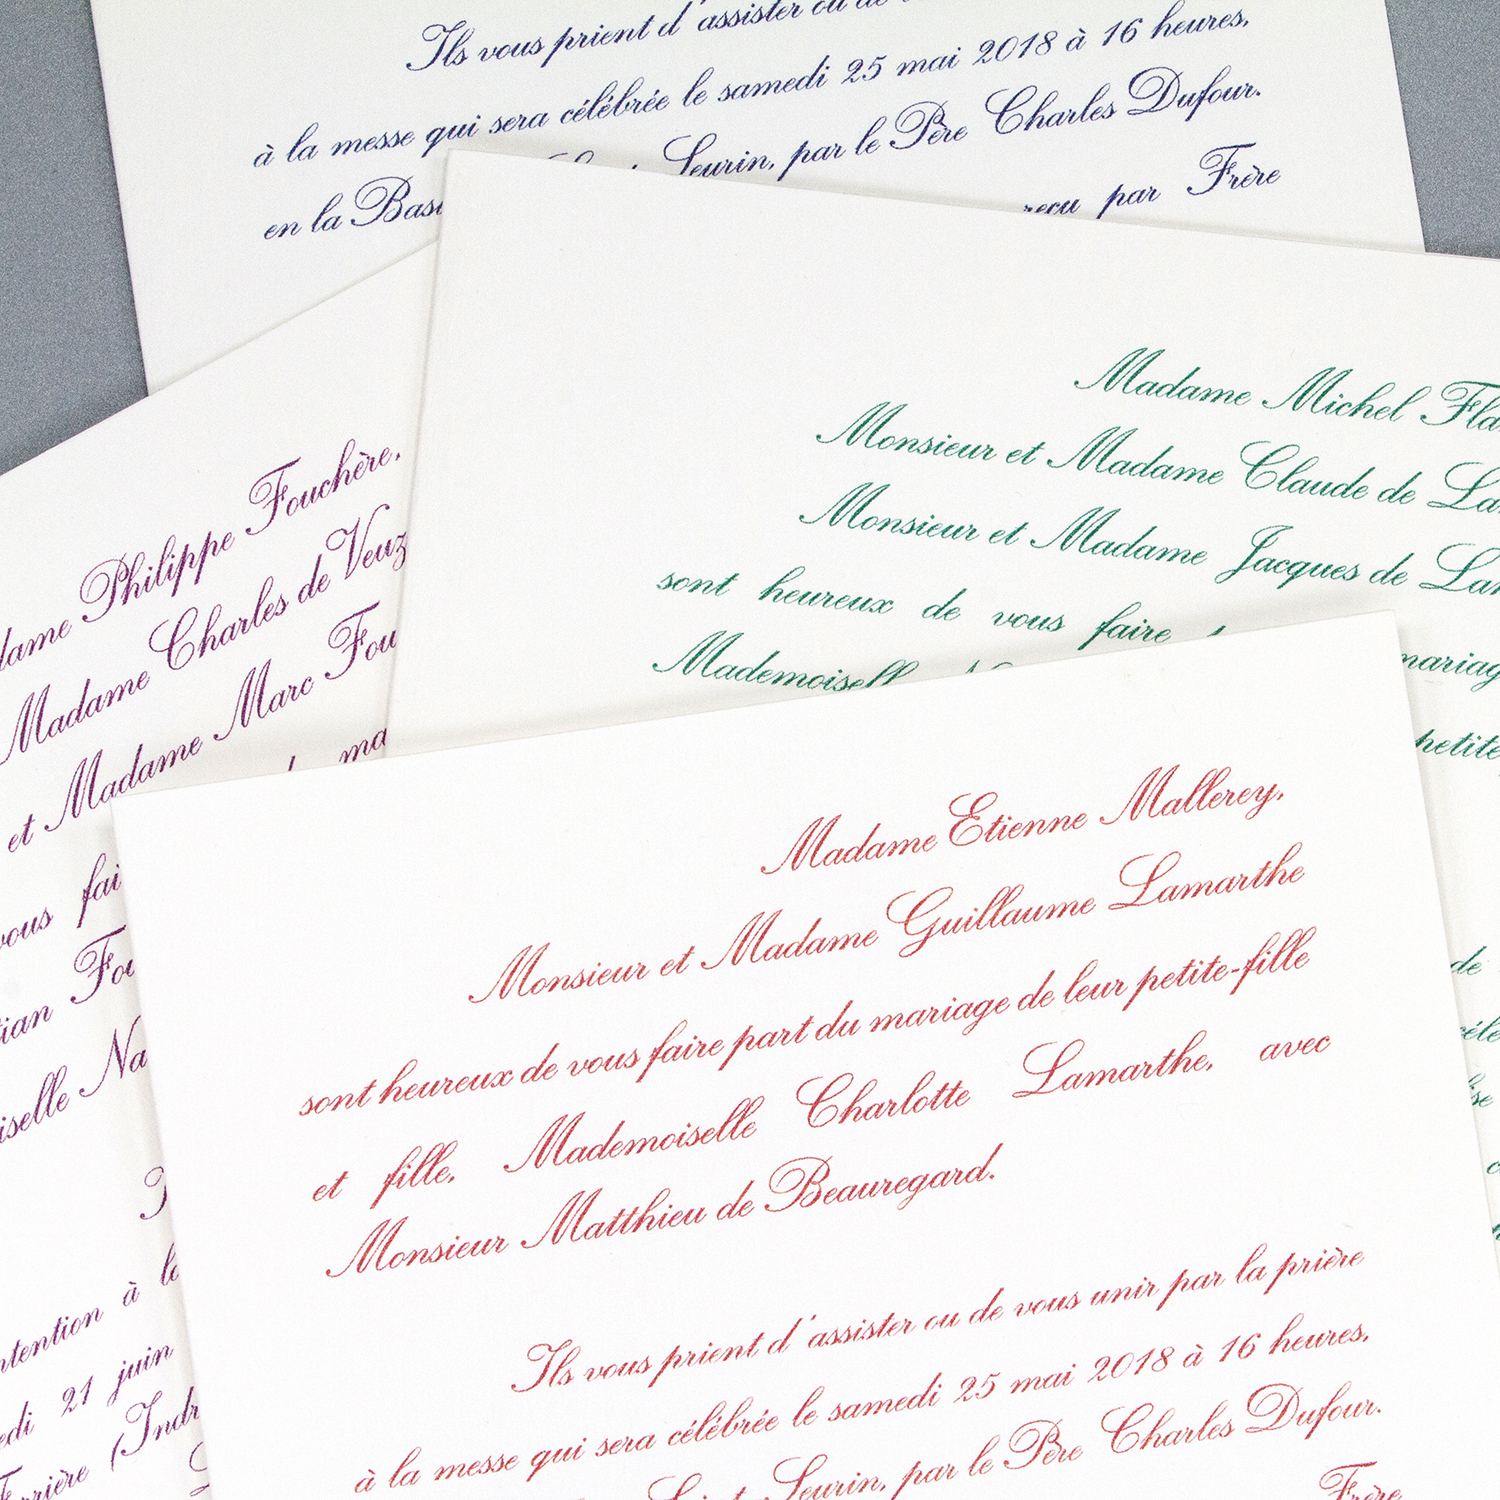 Ils vous prient d'assister ou de
à la messe qui sera célébrée le samedi 25 mai 2018 à 16 heures,
en la Seurin, par le Père Charles Dufour.
reçu par Frère
Madame Michel
Monsieur et Madame Claude de
Monsieur et Madame Jacques de
sont heureux de vous faire
Mademoiselle
Philippe Fouchère,
Madame Charles de
et Madame Marc
vous
à
21 juin
Madame Etienne Mallerey,
Monsieur et Madame Guillaume Lamarthe
sont heureux de vous faire part du mariage de leur petite-fille
et fille, Mademoiselle Charlotte Lamarthe, avec
Monsieur Matthieu de Beauregard.
Ils vous prient d'assister ou de vous unir par la prière
à la messe qui sera célébrée le samedi 25 mai 2018 à 16 heures,
Saint-Seurin, par le Père Charles Dufour.
Frère